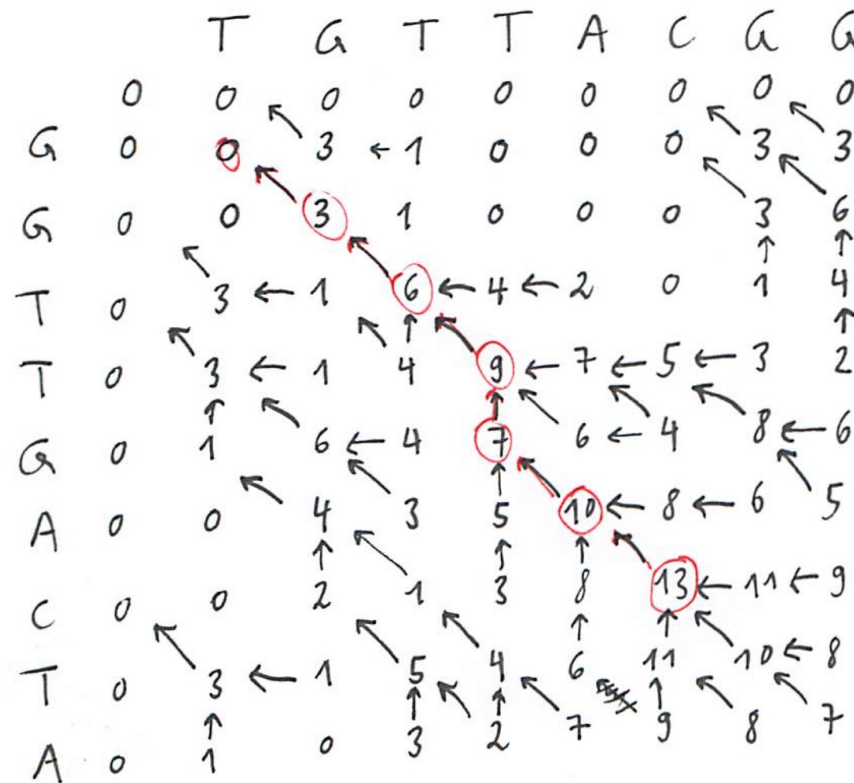 T G T T A C G G
0 0 0 0 0 0 0 0 0
G 0 0 3 ← 1 0 0 0 3 3
G 0 0 3 1 0 0 0 3 6
T 0 3 ← 1 6 ← 4 ← 2 0 1 4
T 0 3 ← 1 4 9 ← 7 ← 5 ← 3 2
G 0 1 6 ← 4 7 6 ← 4 8 ← 6
A 0 0 4 3 5 10 ← 8 ← 6 5
C 0 0 2 1 3 8 13 ← 11 ← 9
T 0 3 ← 1 5 4 6 11 10 ← 8
A 0 1 0 3 2 7 9 8 7